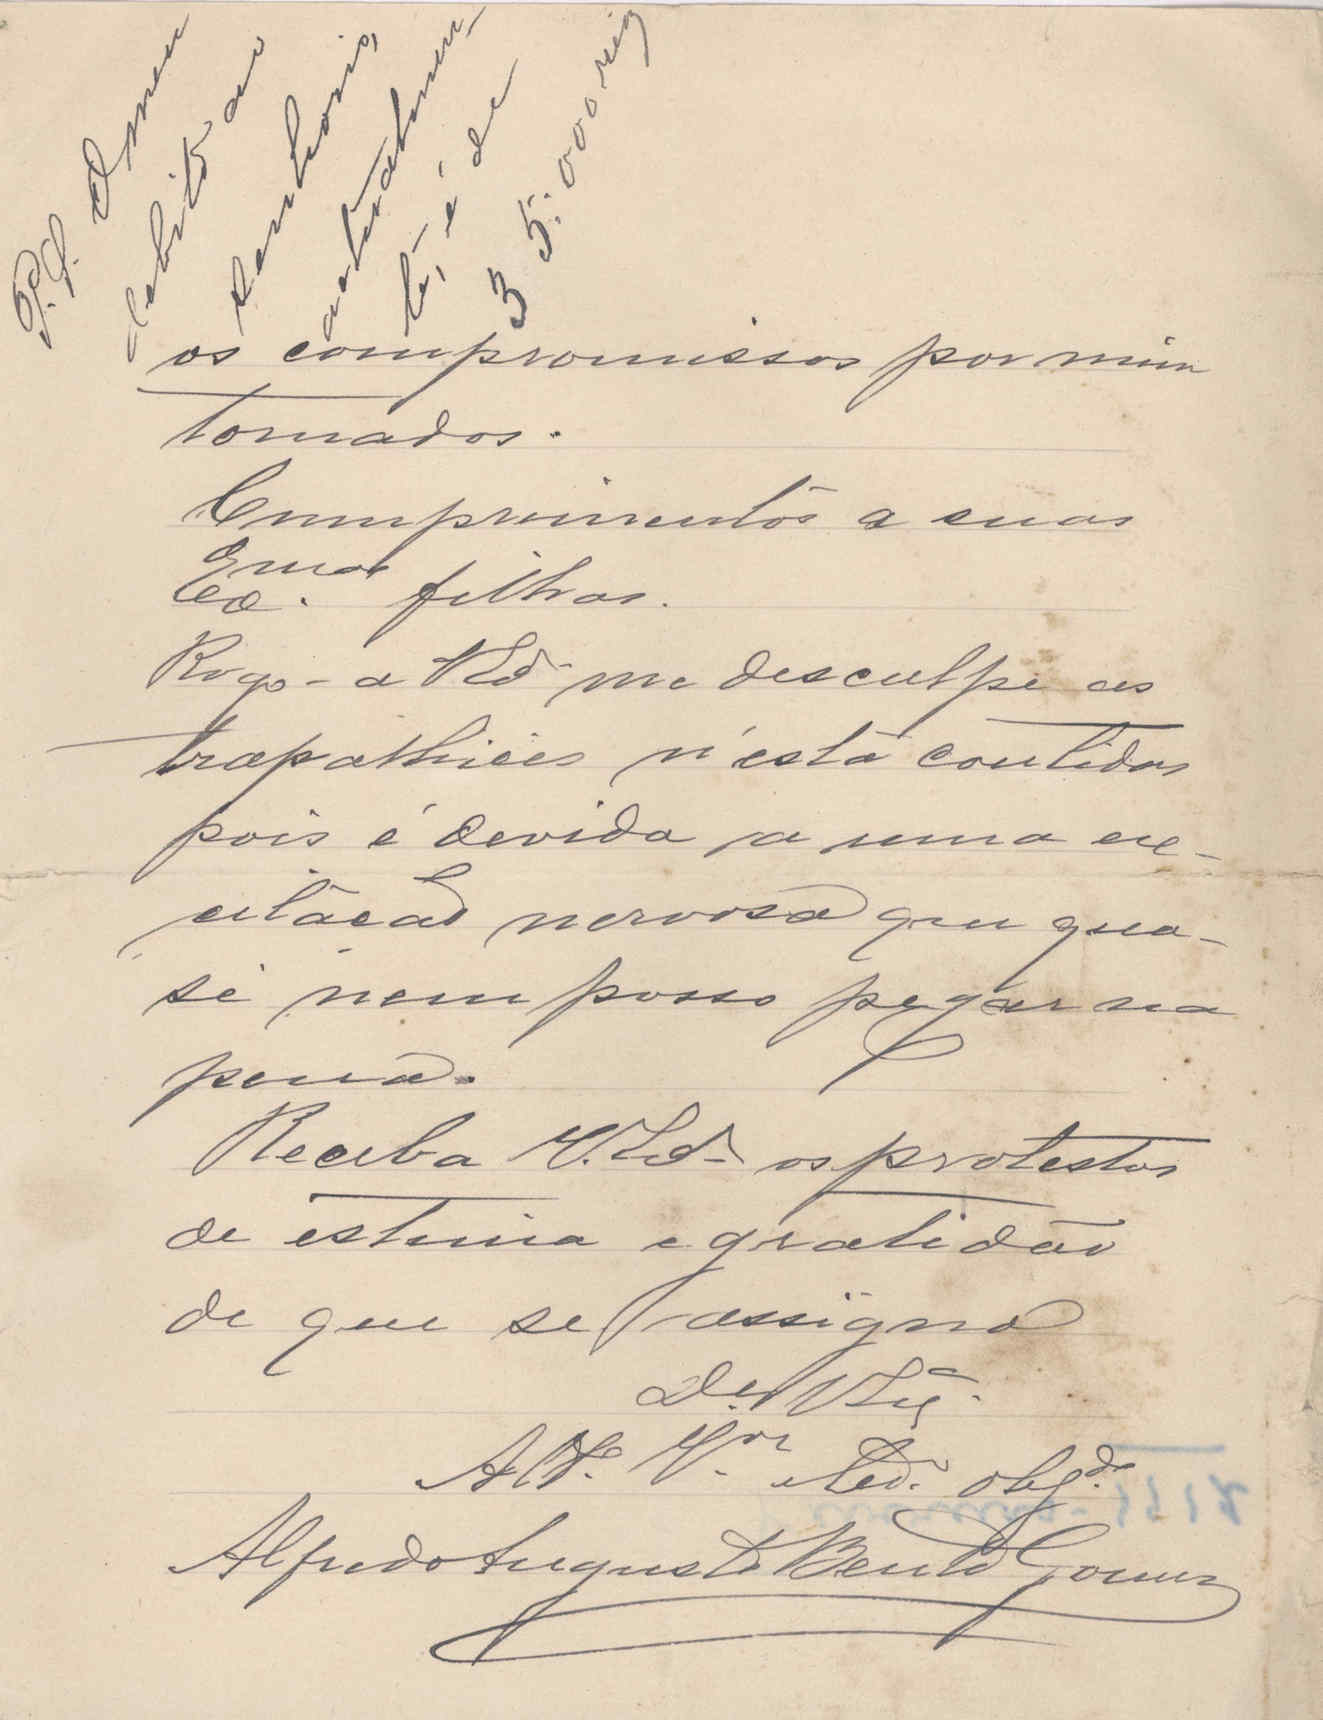 P.S. O meu
debito ao
senhorio,
actualmen-
te, é de
35:000 reis
os compromissos por mim
tomados.
Cumprimentos a suas
Exmas. filhas.
Rogo-a V. Ed. me desculpe as
trapalhices n'esta contidas
pois é devida a uma ex-
citacao nervosa que qua-
si nem posso pegar na
pena.
Receba V. Ed. os protestos
de estima e gratidão
de que se assigna
De V. Exª.
Att. Vor. Obgdo.
Alfredo Augusto Bento Gomes